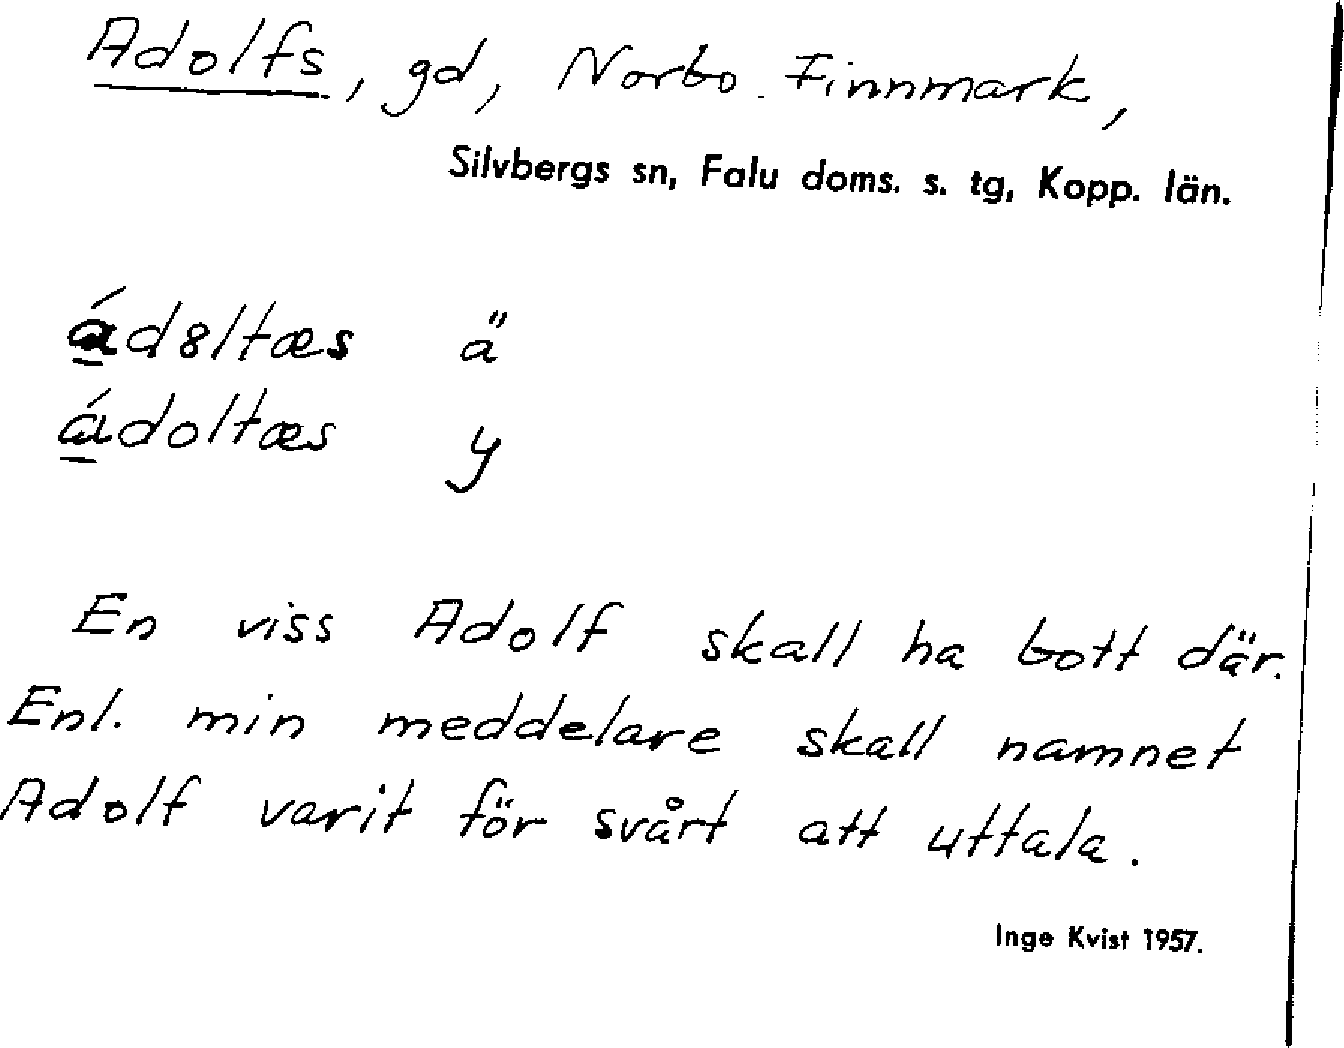 Adolfs, gd, Norbo Finnmark,
Silvbergs sn, Falu doms. s. tg, Kopp. län.
ád8ltæs ä
ádoltæs y
En viss Adolf skall ha bott där.
Enl. min meddelare skall namnet
Adolf varit för svårt att uttala.
Inge Kvist 1957.